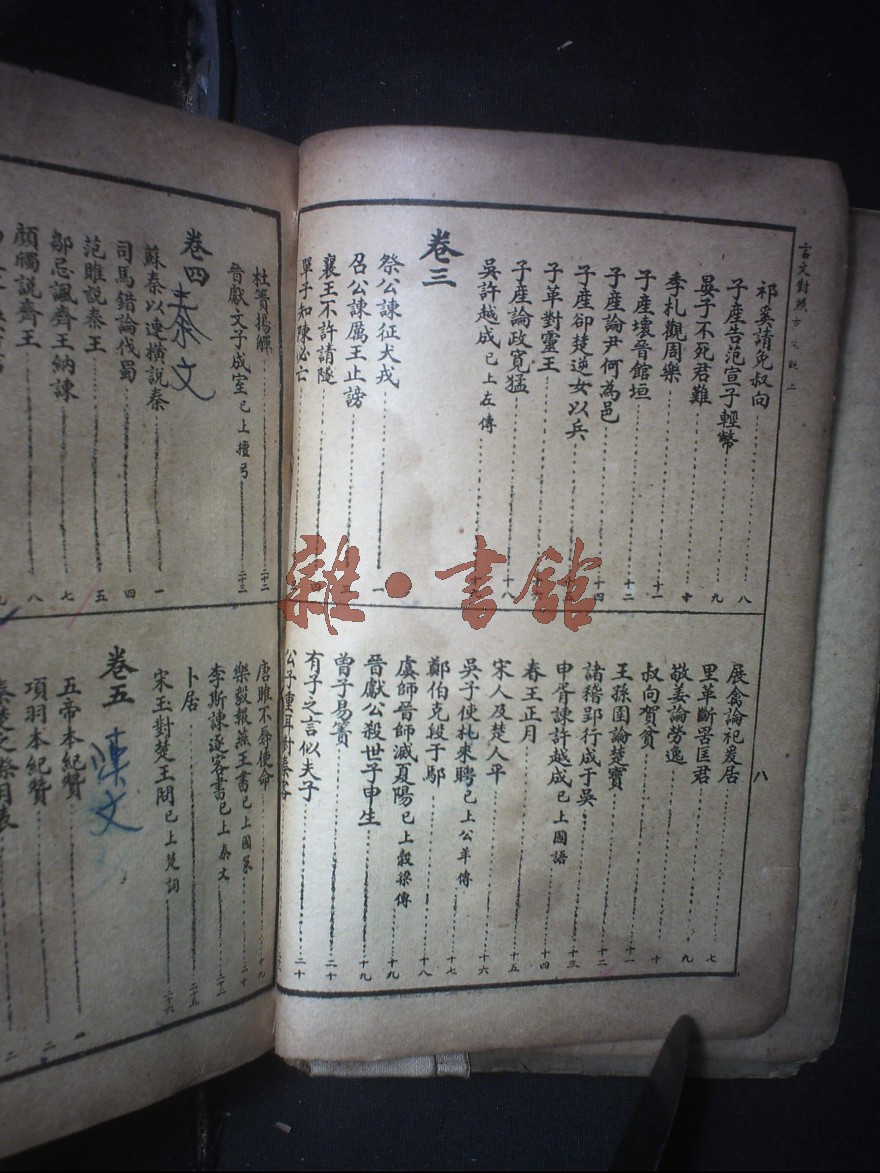 言文對照
祁奚請免叔向 八
子產告范宣子輕幣 九
晏子不死君難 十
季札觀周樂 十一
子產壞晉館垣 十二
子產論尹何為邑 十四
子產卻楚逆女以兵
子革對靈王
子產論政寬猛 十八
吳許越成 已上左傳
卷三
祭公諫征犬戎 一
召公諫厲王止謗
襄王不許請隧
單子知陳必亡
展禽論祀爰居 七
里革斷罟匡君 八
敬姜論勞逸 九
叔向賀貧 十
王孫圉論楚寶 十一
諸稽郢行成于吳 十二
申胥諫許越成 已上國語 十三
春王正月 十四
宋人及楚人平 十五
吳子使札來聘 已上公羊傳 十六
鄭伯克段于鄢 十七
虞師晉師滅夏陽 已上穀梁傳 十八
晉獻公殺世子申生 十九
曾子易簀 十九
有子之言似夫子 二十
公子重耳對秦客 二十
八
杜蕢揚觶 二十二
晉獻文子成室 已上檀弓 二十三
卷四
秦文
蘇秦以連橫說秦 一
司馬錯論伐蜀 四
范雎說秦王 五
鄒忌諷齊王納諫 七
顏斶說齊王 八
唐雎不辱使命 十九
樂毅報燕王書 已上國策 二十
李斯諫逐客書 已上秦文 二十三
卜居 二十五
宋玉對楚王問 已上楚詞 二十六
卷五
漢文
五帝本紀贊 一
項羽本紀贊
秦楚之際月表 二
雜·書館